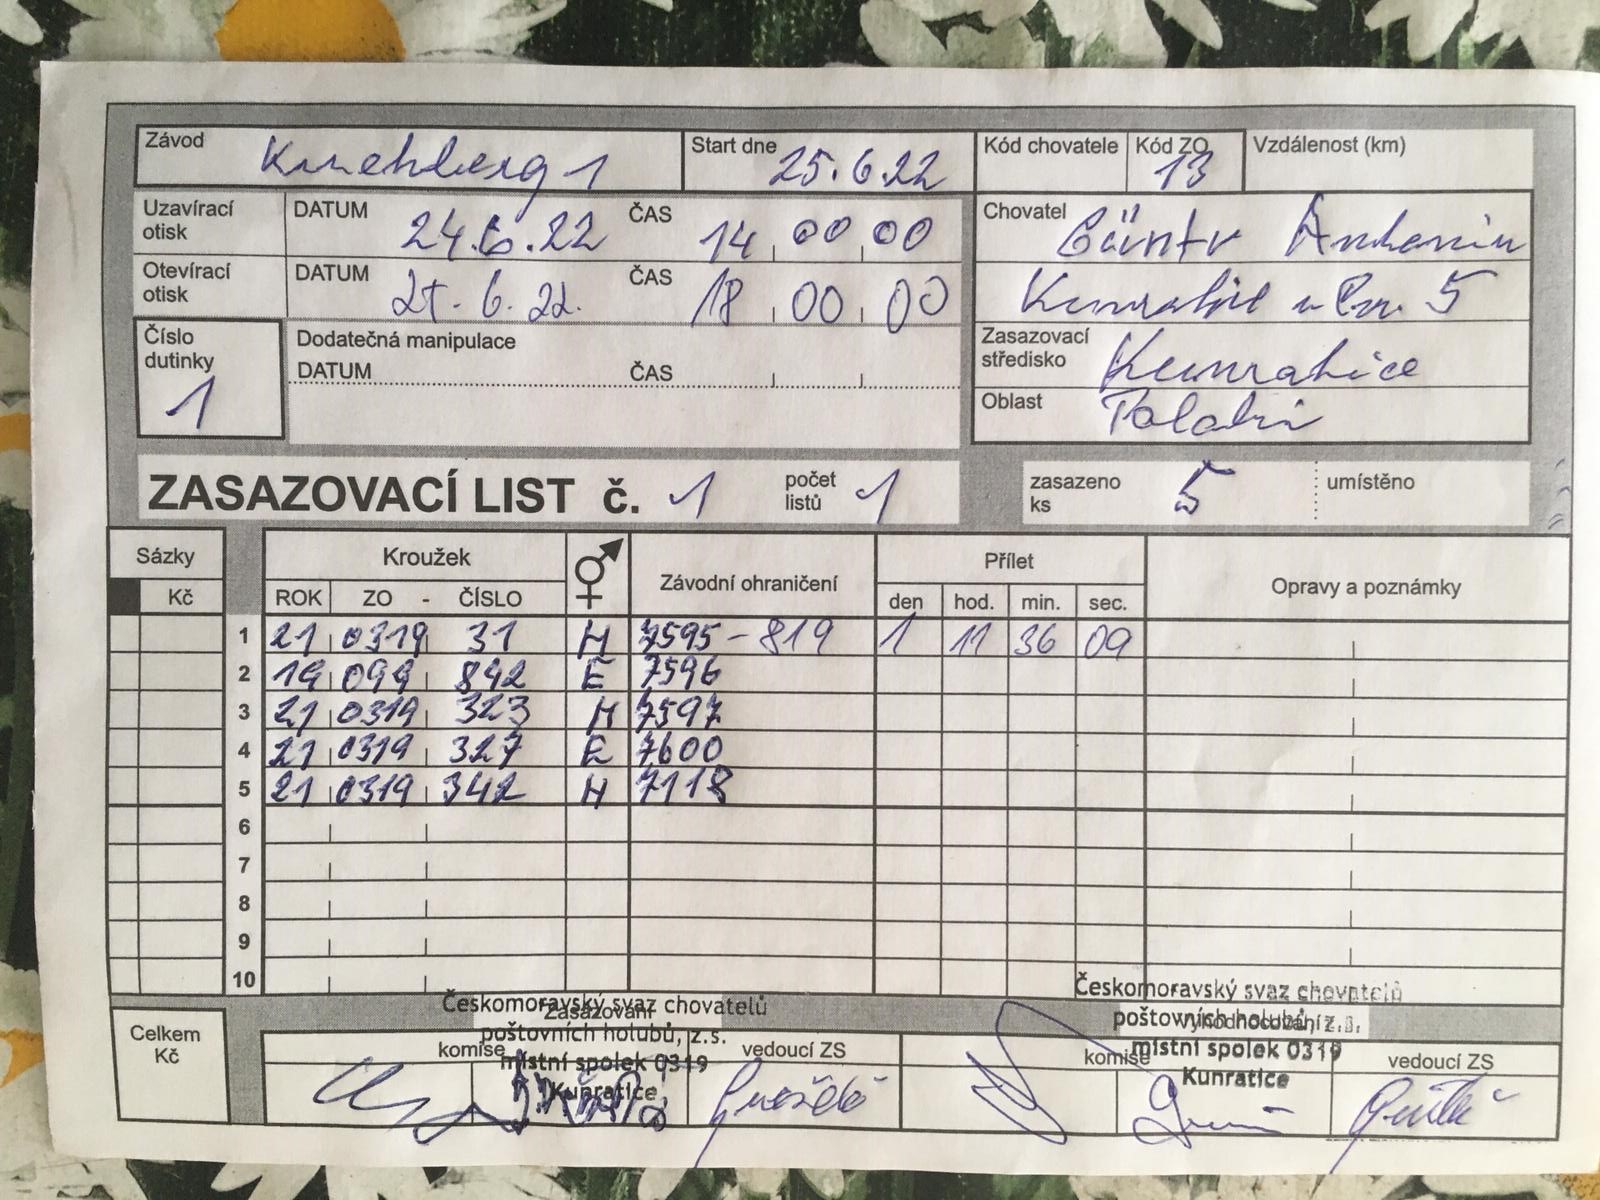 Závod Start dne 25.6.22 Kód chovatele Kód ZO 13 Vzdálenost (km)
Uzavírací otisk DATUM 24.6.22 ČAS 14 00 00 Chovatel
Otevírací otisk DATUM 25.6.22. ČAS 18 00 00 5
Číslo dutinky 1 Dodatečná manipulace Zasazovací středisko Kunratice
DATUM ČAS
Oblast
ZASAZOVACÍ LIST č. 1 počet listů 1 zasazeno ks 5 umístěno
Sázky Kroužek Závodní ohraničení Přílet Opravy a poznámky
Kč ROK ZO - ČÍSLO den hod. min. sec.
1 21 0319 31 H 7595 - 819 1 11 36 09
2 19 842 E 7596
3 21 0319 323 H 7597
4 21 0319 327 E 7600
5 21 0319 342 H 7118
6
7
8
9
10
Českomoravský svaz chovatelů Českomoravský svaz chovatelů
Zasazování
poštovních holubů, z.s. poštovních holubů, z.s.
Vyhodnocování
Celkem Kč komise vedoucí ZS komise vedoucí ZS
místní spolek 0319 místní spolek 0319
Kunratice Kunratice